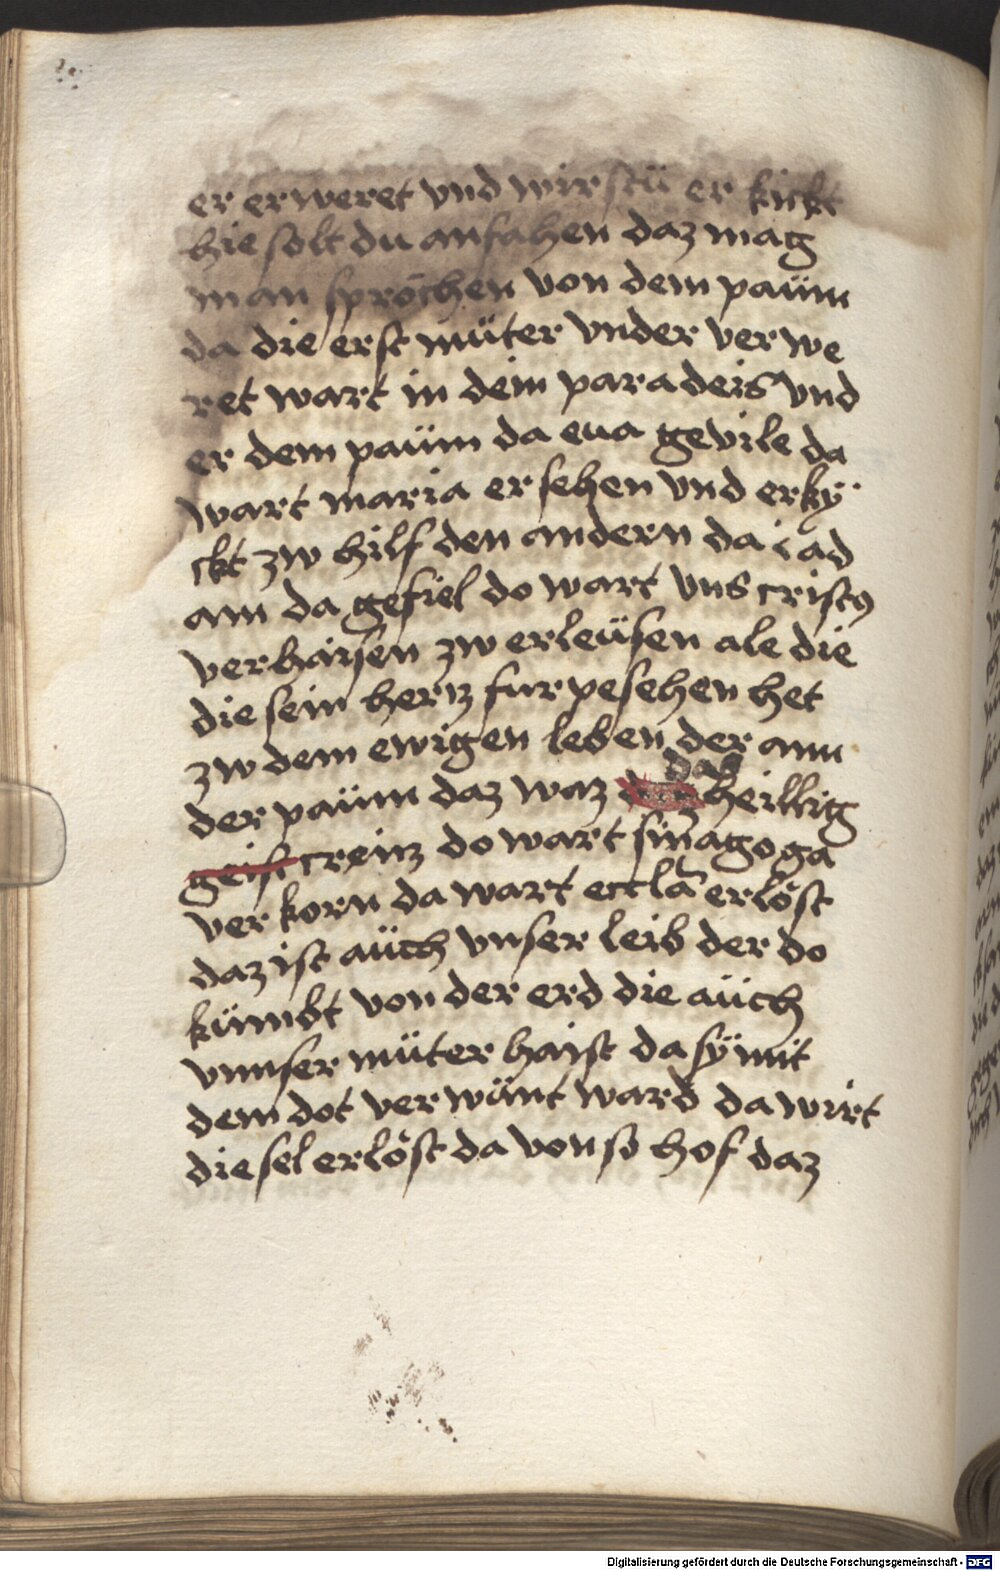 er erweret vnd wirstü er kickt
hie solt du anfahen daz mag
man spröchen von dem paüm
da die erst müter vnder verwe
ret wart in dem paradeis vnd
er dem paüm da eua gevile da
wart maria ersehen vnd erkÿ
ckt zw hilf den andern da i ad
am da gefiel do wart vns cristꝯ
verhaisen zw erleüsen ale die
die sein hertz fur pesehen het
zw dem ewigen leben der ann
der paüm daz waz daz heillig
geist creitz do wart sinagoga
verkorn da wart eccla erlöst
daz ist aüch vnser leib der do
kümbt von der erd die aüch
vnnser müter haist da sÿ mit
dem dot verwünt ward da wirt
die sel erlöst da von so hof daz
Digitalisierung gefördert durch die Deutsche Forschungsgemeinschaft - DFG